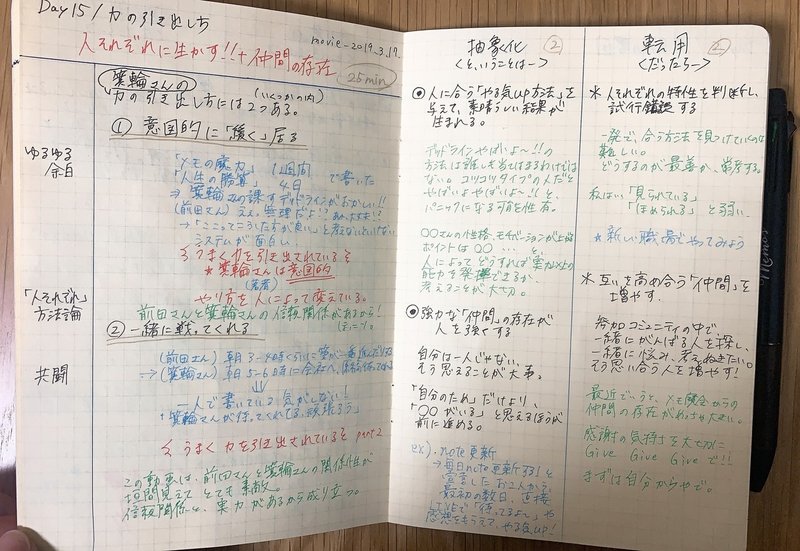 Day 15 / 力の引き出し方
人それぞれに生かす!!+仲間の存在
movie-2019.3.19
25min
箕輪さんの (いくつかの内)
力の引き出し方には2つある。
① 意図的に「緩く」居る
ゆるゆる
余白
「メモの魔力」 1週間
「人生の勝算」 4日 で書いた
⇒ 箕輪さんの課すデッドラインがおかしい!!
(前田さん) ええ、無理だよ!?
→「ここってこうした方が良い」と考えないといけない
システムが面白い
うまく力を引き出されているぞ
★箕輪さんは意図的
(著者)
やり方を人によって変えている。
「人それぞれ」
方法論
前田さんと箕輪さんの信頼関係があるから!
② 一緒に戦ってくれる
共闘
(前田さん) 朝3-4時くらいに
→(箕輪さん) 朝5-6時に会社へ
一人で書いている気がしない!
「箕輪さんが待ってくれてる、頑張ろう」
うまく力を引き出されているぞ part2
この動画は、前田さんと箕輪さんの関係性が
垣間見えてとても素敵。
信頼関係と、実力があるから成り立つ。
抽象化 ②
<と、いうことは→>
● 人に合う「やる気up方法」を
与えて、素晴らしい結果が
生まれる。
デッドラインやばいよ〜!!の
方法は誰しも当てはまるわけでは
ない。コツコツタイプの人だと
やばいよやばいよ〜!!と、
パニックになる可能性有。
〇〇さんの性格、モチベーションが上がる
ポイントは〇〇…と、
人によってどうすれば実力以上の
能力を発揮できるか、
考えることが大切。
● 強力な「仲間」の存在が
人を強くする
自分は一人じゃない、
そう思えることが大事。
「自分のため」だけより、
「〇〇がいる」と思えるほうが
前に進める。
ex). note更新
→毎日note更新する!と
宣言したお二人から
最初の数日、直接
「待ってるよ〜」や
感想をもらえて、やる気up!
転用 ②
<だったら→>
* 人それぞれの特性を判断し、
試行錯誤する
一発で、合う方法を見つけていくのは
難しい。
どうするのが最善か、
私は、「見られている」
「ほめられる」と弱い。
★新しい職場でやってみよう
* 互いを高め合う「仲間」を
増やす.
参加コミュニティの中で
一緒にがんばる人を探し、
一緒に悩み、考えぬきたい。
そう思い合う人を増やす!
最近でいうと、メモ魔会からの
仲間の存在がめっちゃ大きい。
感謝の気持ちを大切に
Give Give Giveで!!
まずは自分からやで。